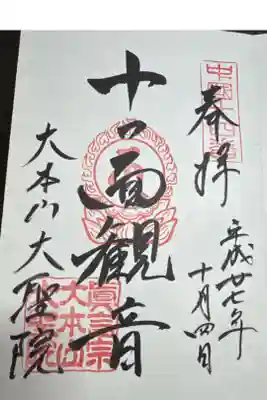 奉拝
平成廿七年
十月四日
十一面観音
大本山大聖院
眞言宗
大本山